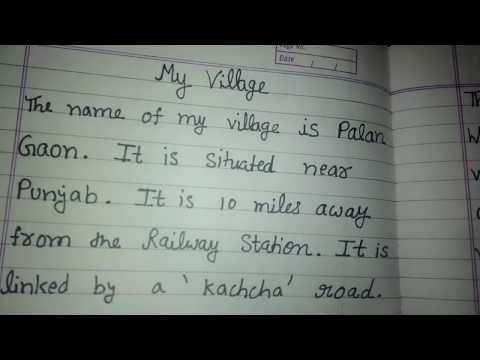 Page No.
Date / /
My Village
The name of my village is Palan
Gaon. It is situated near
Punjab. It is 10 miles away
from the Railway Station. It is
linked by a 'kachcha' road.
Th
W